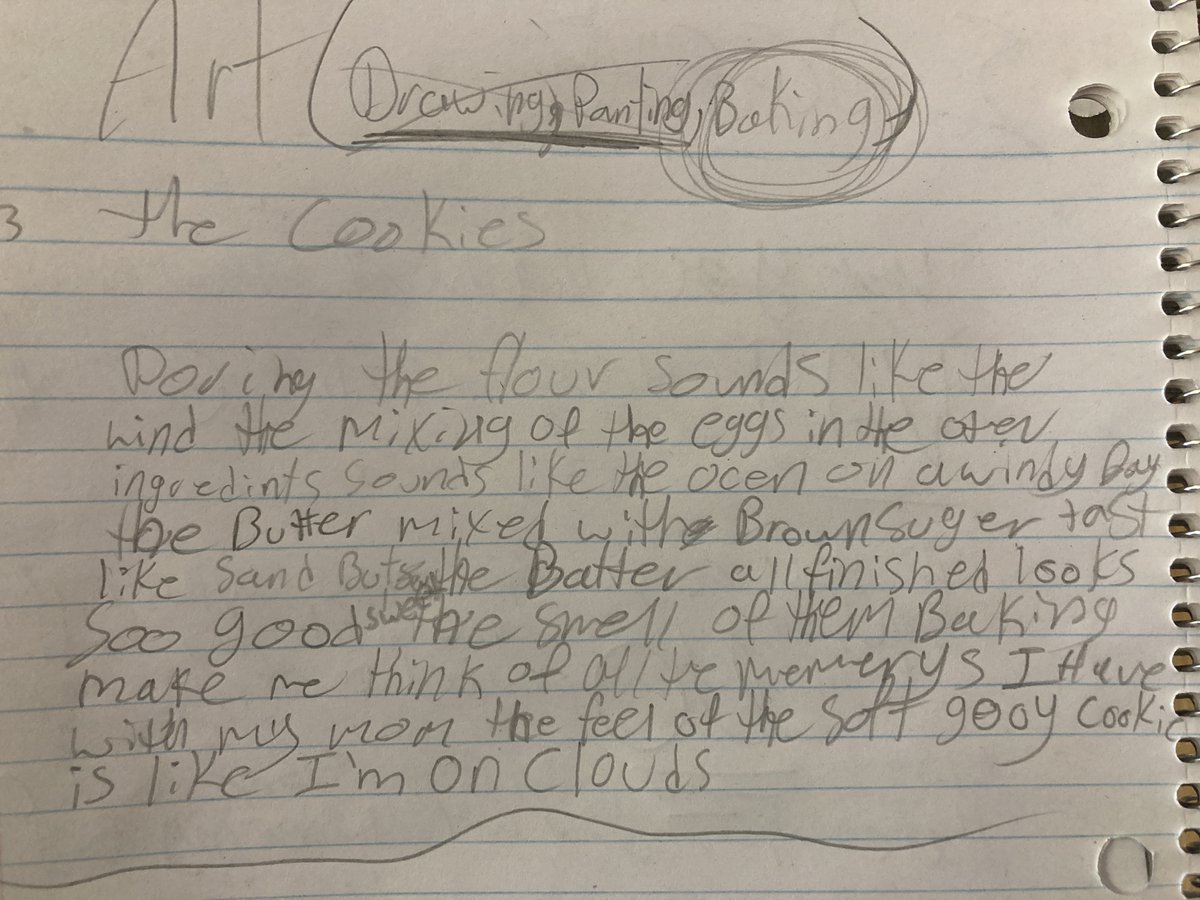 Art (Drawing, Panting, Baking)
3 the Cookies
Poring the flour sounds like the
wind the mixing of the eggs in the oter
ingredints sounds like the ocen on a windy Day
the Butter mixed with Brown suger tast
like sand But sweet the Batter all finished looks
Soo good the smell of them Baking
make me think of all the memerys I Have
with my mom the feel of the soft gooy cookie
is like I'm on Clouds